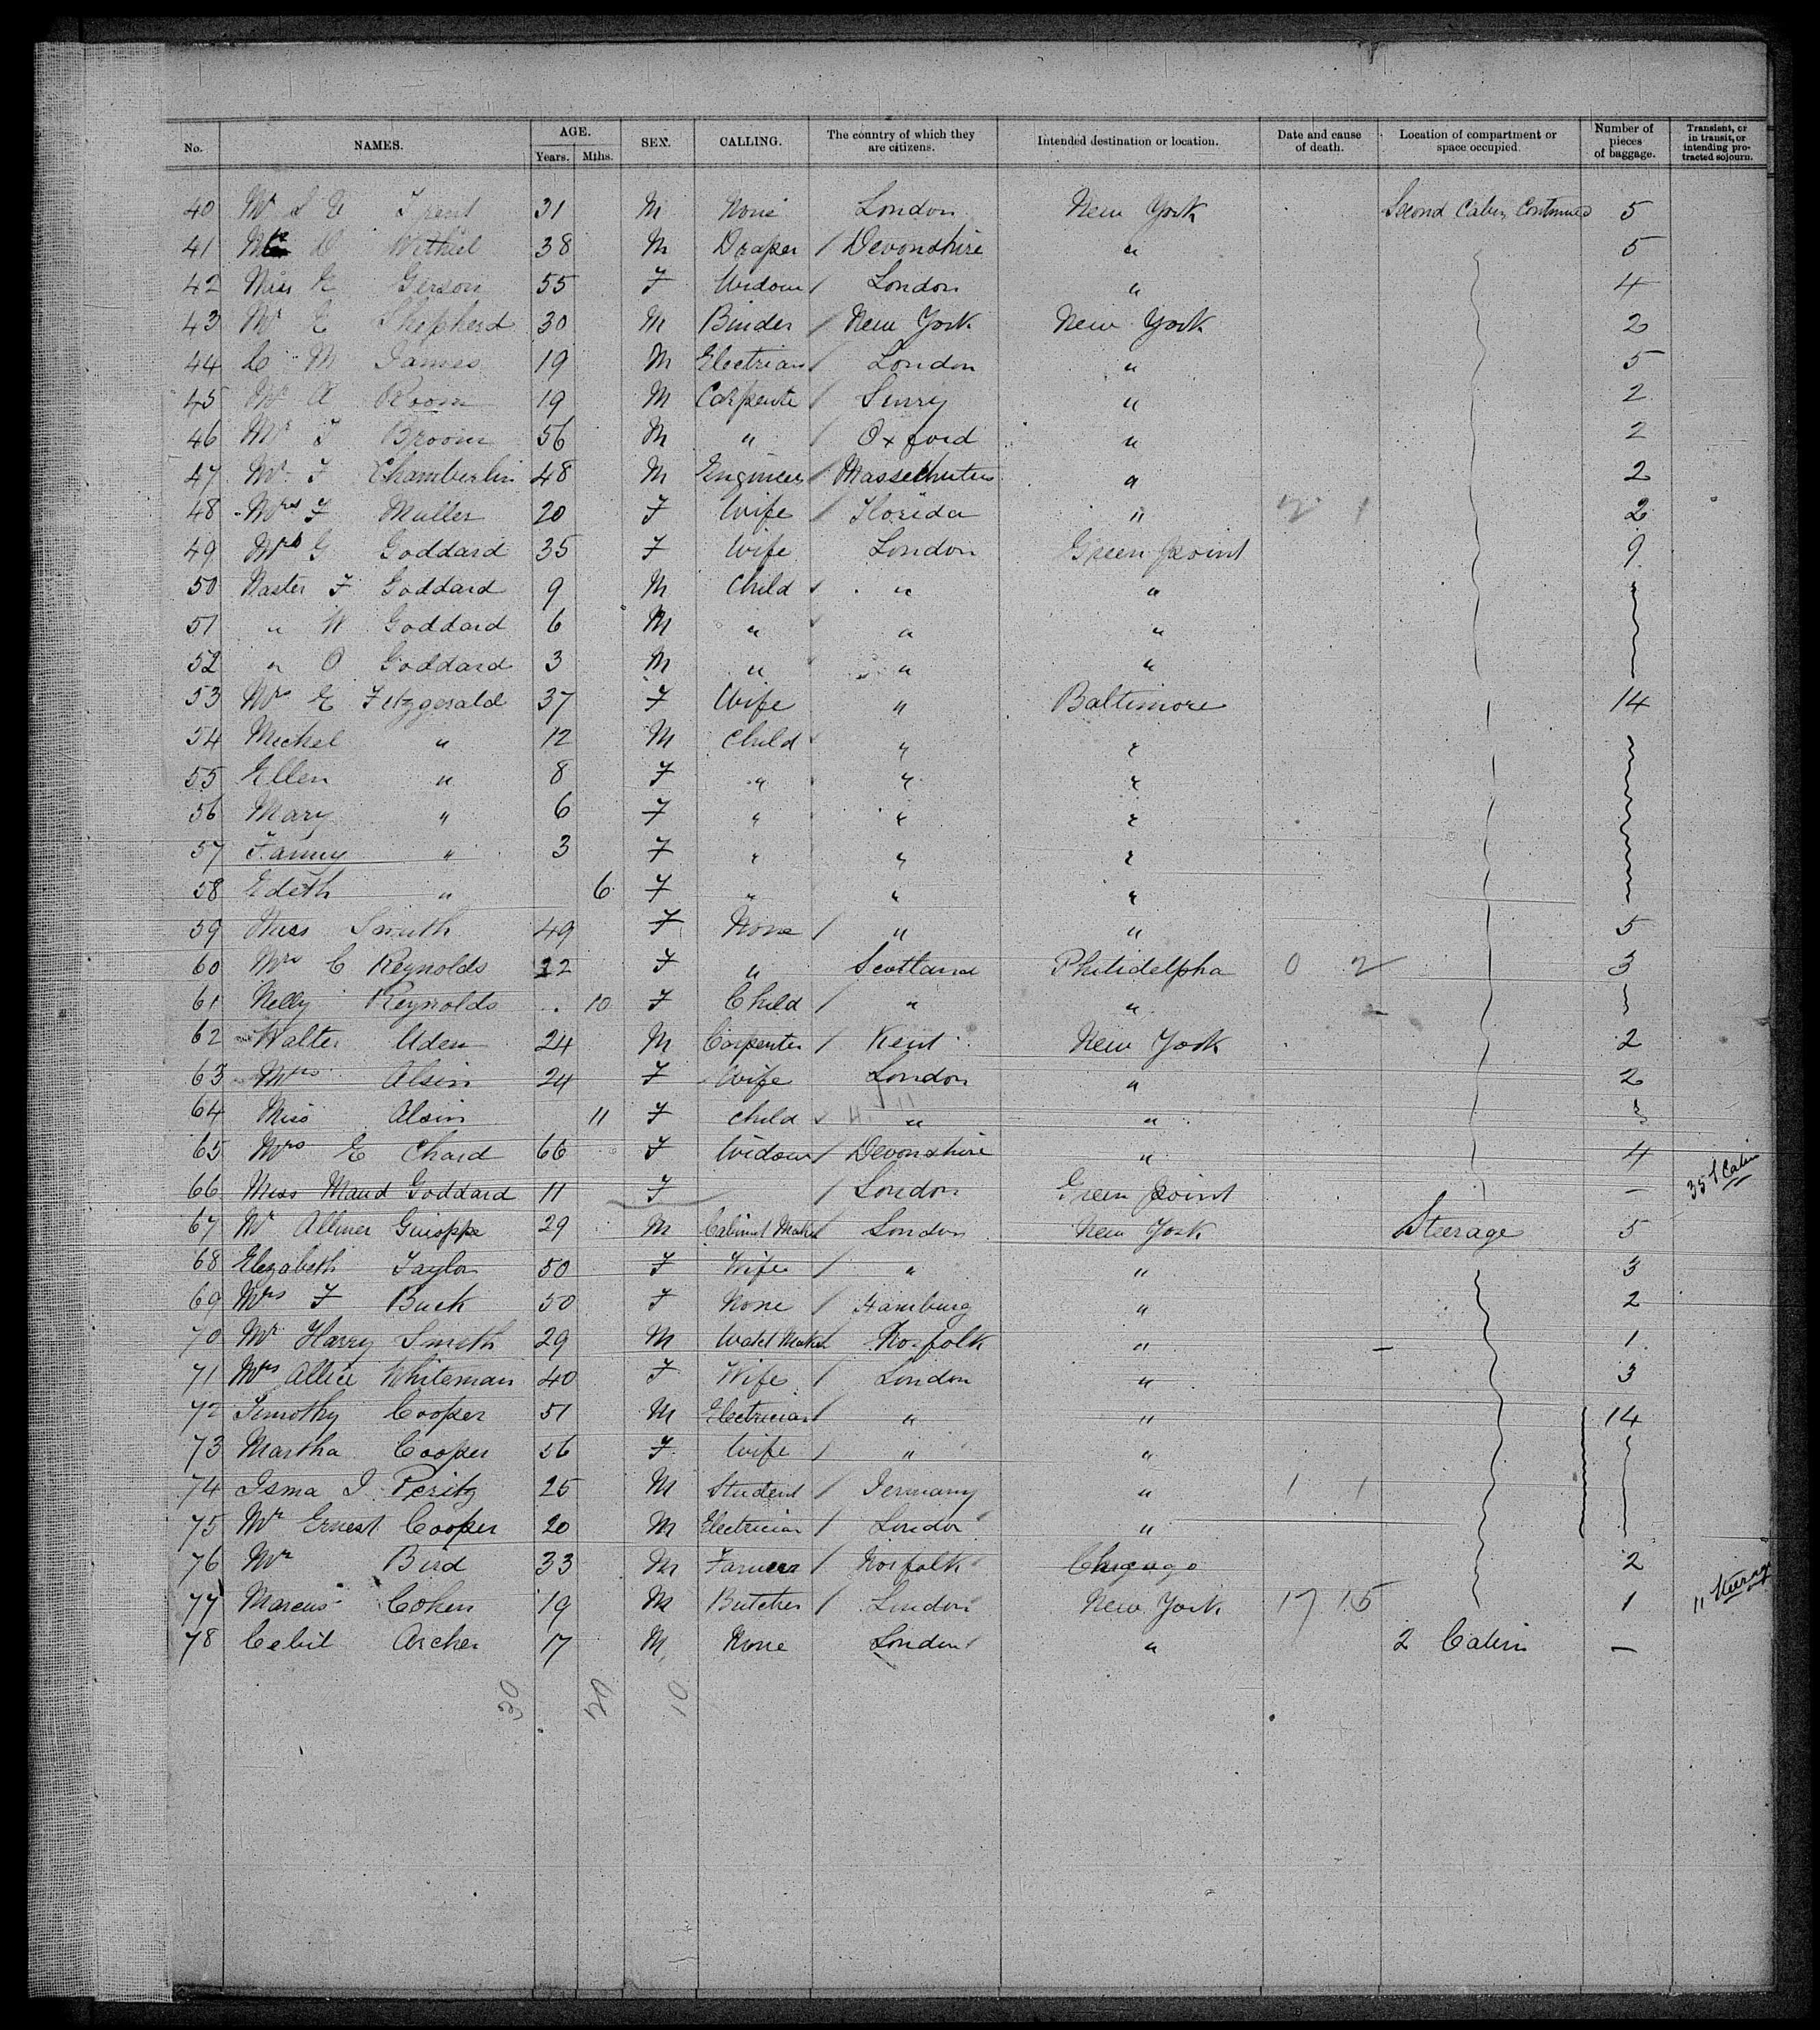 No. NAMES. AGE. Years. Mths. SEX. CALLING. The country of which they are citizens. Intended destination or location. Date and cause of death. Location of compartment or space occupied. Number of pieces of baggage. Transient, or in transit, or intending protracted sojourn.
40 Mr S E 31 M None London New York Second Cabin Continued 5
41 38 M Draper / Devonshire " 5
42 Miss E Gerson 55 F Widow / London " 4
43 Mr E Shepherd 30 M Binder / New York New York 2
44 C M James 19 M Electrian / London " 5
45 Mr A Room 19 M Carpente / Surry " 2
46 Mr J Broom 56 M " / Oxford " 2
47 Mr F Chamberlin 48 M Engineer / Massechutes " 2
48 Mrs F Muller 20 F Wife / Florida " 2
49 Mrs G Goddard 35 F Wife London Green Point 9
50 Master F Goddard 9 M Child " "
51 " W Goddard 6 M " " "
52 " O Goddard 3 M " " "
53 Mrs E Fitzgerald 37 F Wife " Baltimore 14
54 Mickel " 12 M Child " "
55 Ellen " 8 F " " "
56 Mary " 6 F " " "
57 Fanny " 3 F " " "
58 Edeth " 6 F " " "
59 Miss Smith 49 F None / " " 5
60 Mrs C Reynolds 22 F " Scotland Philidelpha 0 2 3
61 Nelly Reynolds 10 F Child / " "
62 Walter Uden 24 M Carpenter / Kent New York 2
63 Mrs Alsin 24 F Wife London " 2
64 Miss Alsin 11 F Child " "
65 Mrs E Chard 66 F Widow / Devonshire " 4
66 Miss Maud Goddard 11 F / London Green Point — 35 / Cabin
67 Mr Allmer Guisppe 29 M Cabinet Maker London New York Sterage 5
68 Elezabeth Taylor 50 F Wife / " " 3
69 Mrs F Buck 50 F None / Hamburg " 2
70 Mr Harry Smith 29 M Watch Maker Norfolk " 1
71 Mrs Allice Whiteman 40 F Wife / London " 3
72 Timothy Cooper 51 M Electrician / " " 14
73 Martha Cooper 56 F Wife / " "
74 Isma I Peritz 25 M Student / Germany " 1 1
75 Mr Ernest Cooper 20 M Electrician / London "
76 Mr Bird 33 M Farmer / Norfolk Chicago 2
77 Marcus Cohen 19 M Butcher / London New York 17 15 1 11 Sterage
78 Cebil Archer 17 M None London " 2 Cabin —
30 20 10